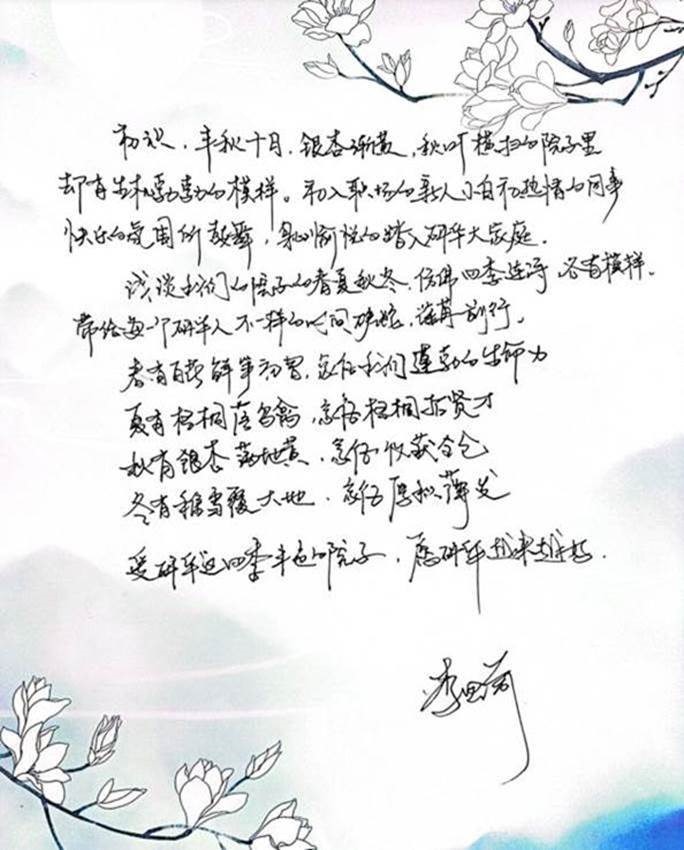 初识，丰秋十月，银杏渐黄，秋叶横扫的院子里
却有生机勃勃的模样。初入职场的新人小白初热情的同事
快乐的氛围所鼓舞，身心愉悦的踏入研华大家庭．
谈谈我们的院子的春夏秋冬，仿佛四季连诗，各有模样．
带给每一个研华人不一样的，前行。
春有百花鲜笋初冒，象征我们蓬勃的生命力
夏有梧桐落鸟禽，象征梧桐招贤才
秋有银杏落地黄，象征收获
冬有稚雪覆大地，象征厚积薄发
爱研华这四季丰色的院子，愿研华越来越好．